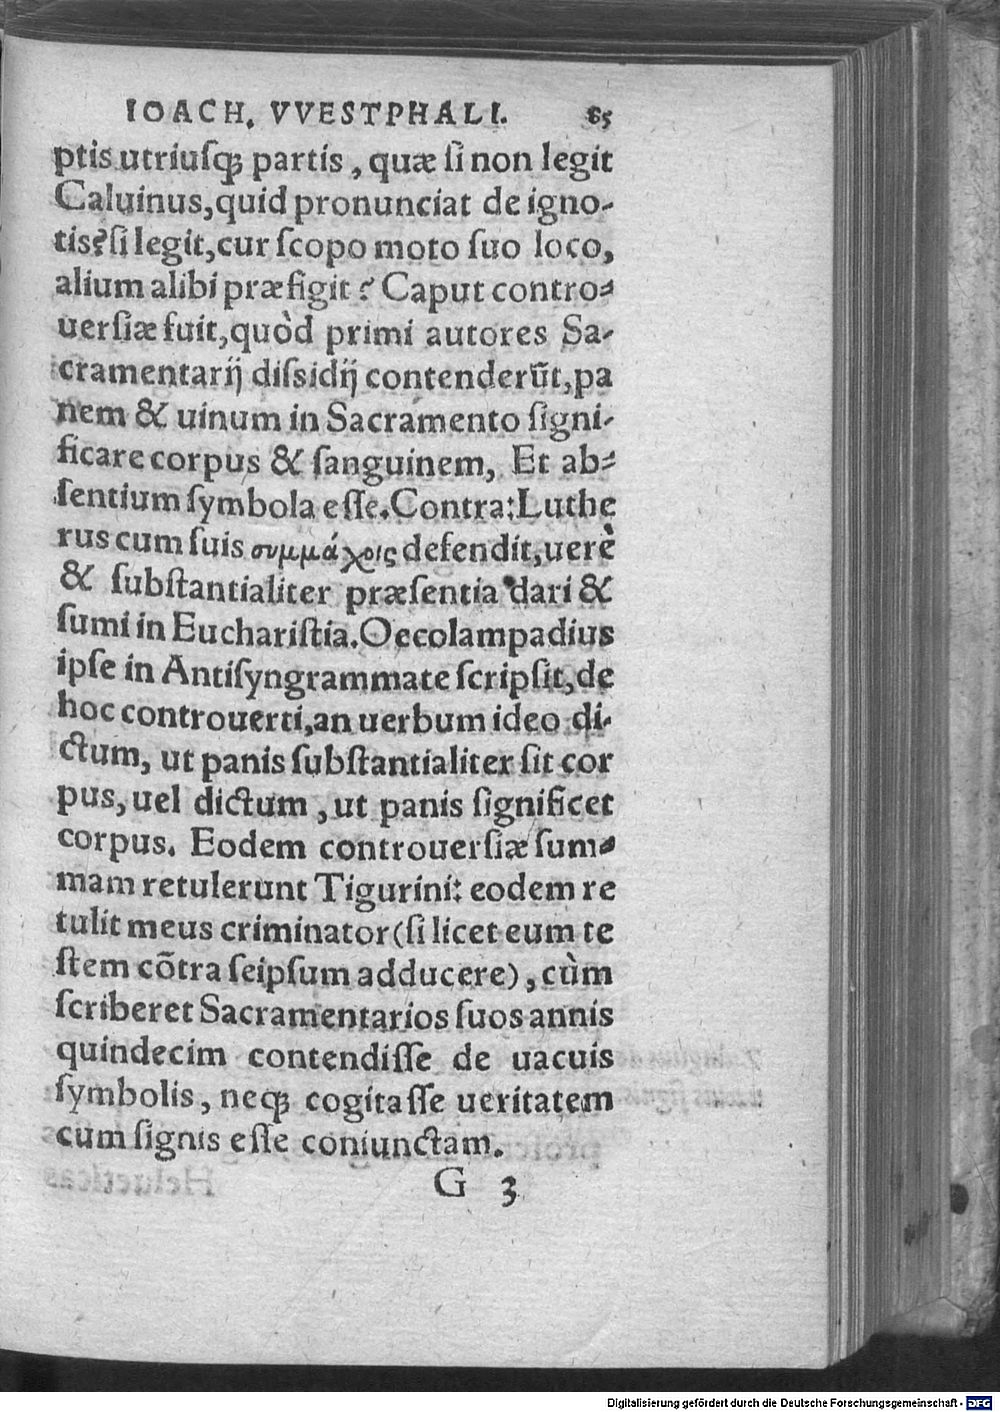 IOACH. VVESTPHALI. 85
ptis utriusq; partis, quæ si non legit
Caluinus, quid pronunciat de igno-
tis? si legit, cur scopo moto suo loco,
alium alibi præfigit? Caput contro-
uersiæ fuit, quòd primi autores Sa-
cramentarij dissidij contenderũt, pa
nem & uinum in Sacramento signi-
ficare corpus & sanguinem, Et ab-
sentium symbola esse. Contra: Luthe
rus cum suis συμμάχοις defendit, uerè
& substantialiter præsentia dari &
sumi in Eucharistia. Oecolampadius
ipse in Antisyngrammate scripsit, de
hoc controuerti, an uerbum ideo di-
ctum, ut panis substantialiter sit cor
pus, uel dictum, ut panis significet
corpus. Eodem controuersiæ sum-
mam retulerunt Tigurini: eodem re
tulit meus criminator (si licet eum te
stem cõtra seipsum adducere), cùm
scriberet Sacramentarios suos annis
quindecim contendisse de uacuis
symbolis, neq; cogitasse ueritatem
cum signis esse coniunctam.
G 3
Digitalisierung gefördert durch die Deutsche Forschungsgemeinschaft - DFG